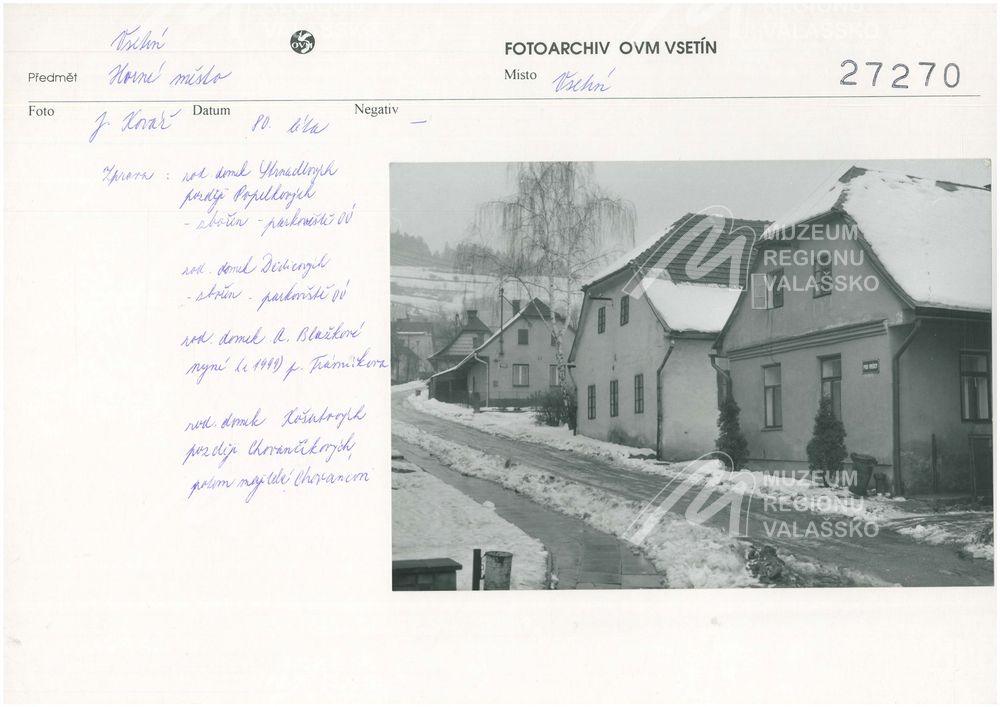 Vsetín
OVM
FOTOARCHIV OVM VSETÍN
Předmět Horné město
Místo Vsetín
27270
Foto J. Kovář Datum 80. léta Negativ –
Zprava : rod. domek Strnadlových
později Popelkových
- zbořen - parkoviště OÚ
rod. domek Dědicových
- zbořen - parkoviště OÚ
rod. domek A. Blažkové
nyní (r. 1999) p. Trávníčkova
rod. domek Košutových
později Chovančíkových,
potom majitelé Chovancovi
MUZEUM
REGIONU
VALAŠSKO
MUZEUM
REGIONU
VALAŠSKO
MUZEUM
REGIONU
VALAŠSKO
MUZEUM
REGIONU
VALAŠSKO